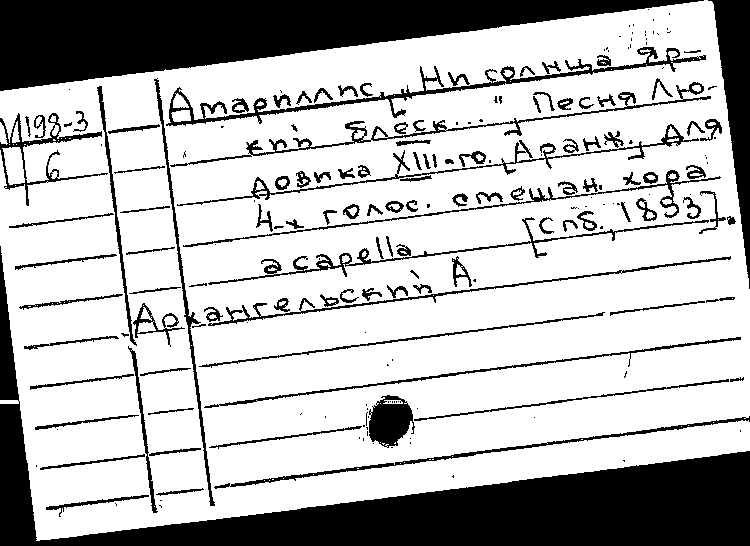 И198-3
Ц 6
Амариллис. ["Ни солнца яр-
кий блеск..."] Песня Лю-
довика XIII-го. [Аранж.] для
4-х голос. смешан. хора
a capella. [Спб., 1893].
Архангельский А.